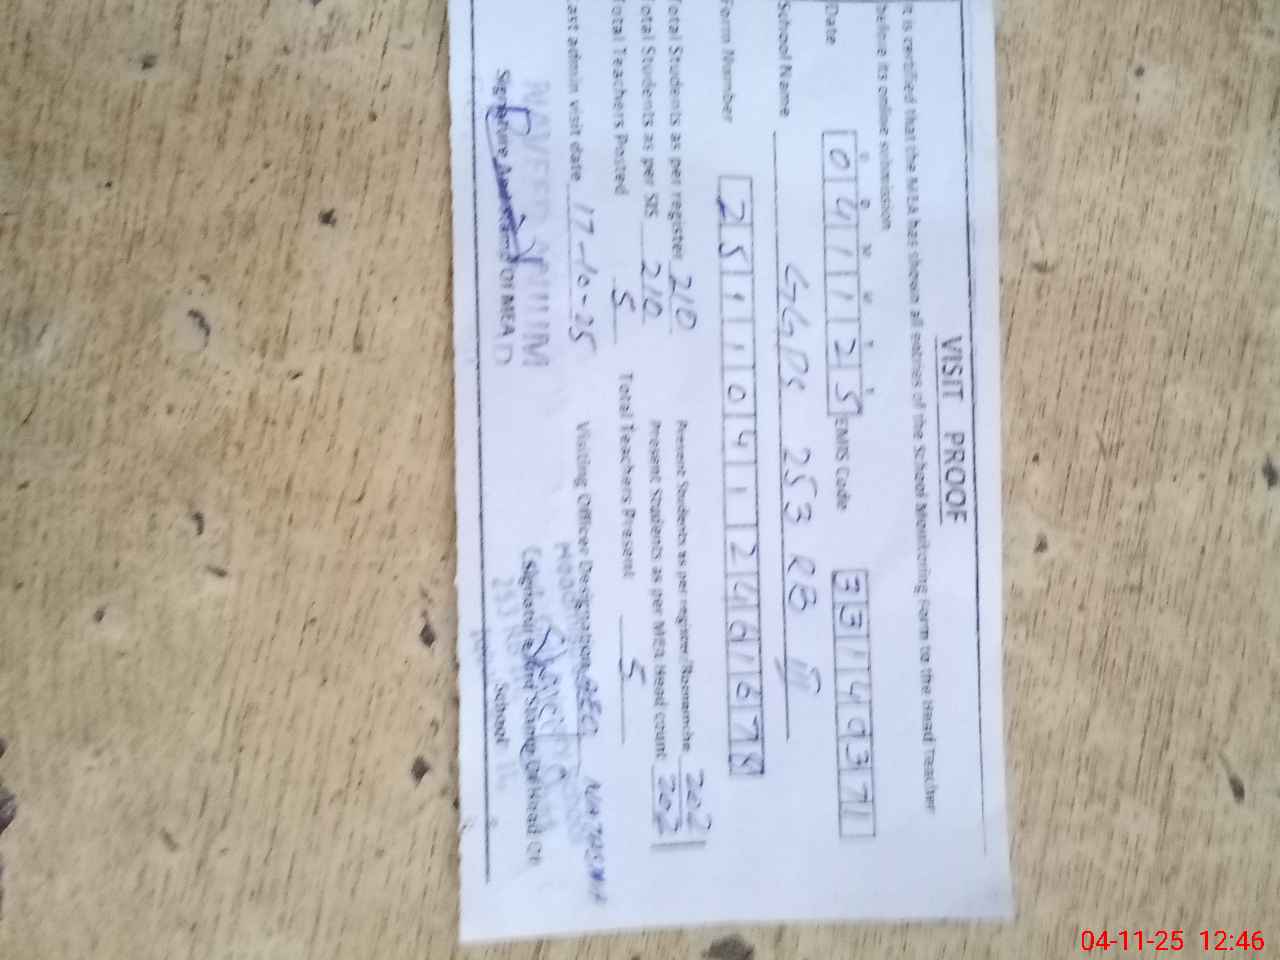 VISIT PROOF
It is certified that the MEA has shown all entries of the School Monitoring Form to the Head Teacher
before its online submission
Date 04 11 25 EMIS Code 33149371
School Name GGPS 253 RB
Form Number 2511104112466678
Total Students as per register 210 Present Students as per register/Roznamcha 202
Total Students as per SIS 210 Present Students as per MEA Head count 202
Total Teachers Posted 5 Total Teachers Present 5
Last admin visit date 17-10-25 Visiting Officer Designation
Signature And Name Of MEA Signature and Stamp Of Head Of
School
04-11-25 12:46